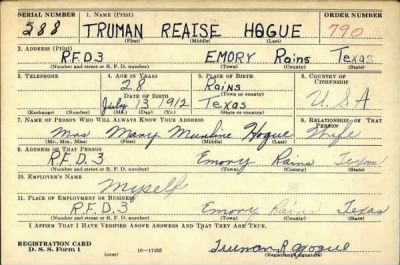 SERIAL NUMBER 1. NAME (Print) ORDER NUMBER
288 TRUMAN REAISE HOGUE 790
(First) (Middle) (Last)
2. ADDRESS (Print)
R.F.D.3 EMORY Rains Texas
(Number and street or R. F. D. number) (Town) (County) (State)
3. TELEPHONE 4. AGE IN YEARS 5. PLACE OF BIRTH 6. COUNTRY OF CITIZENSHIP
28 Rains
DATE OF BIRTH (Town or county)
July 13 1912 Texas U.S.A
(Exchange) (Number) (Mo.) (Day) (Yr.) (State or country)
7. NAME OF PERSON WHO WILL ALWAYS KNOW YOUR ADDRESS 8. RELATIONSHIP OF THAT PERSON
Mrs Mary Hogue Wife
(Mr., Mrs., Miss) (First) (Middle) (Last)
9. ADDRESS OF THAT PERSON
R.F.D.3 Emory Rains Texas
(Number and street or R. F. D. number) (Town) (County) (State)
10. EMPLOYER'S NAME
Myself
11. PLACE OF EMPLOYMENT OR BUSINESS
R.F.D.3 Emory Rains Texas
(Number and street or R. F. D. number) (Town) (County) (State)
I AFFIRM THAT I HAVE VERIFIED ABOVE ANSWERS AND THAT THEY ARE TRUE.
REGISTRATION CARD
D. S. S. Form 1 (over) Truman R Hogue